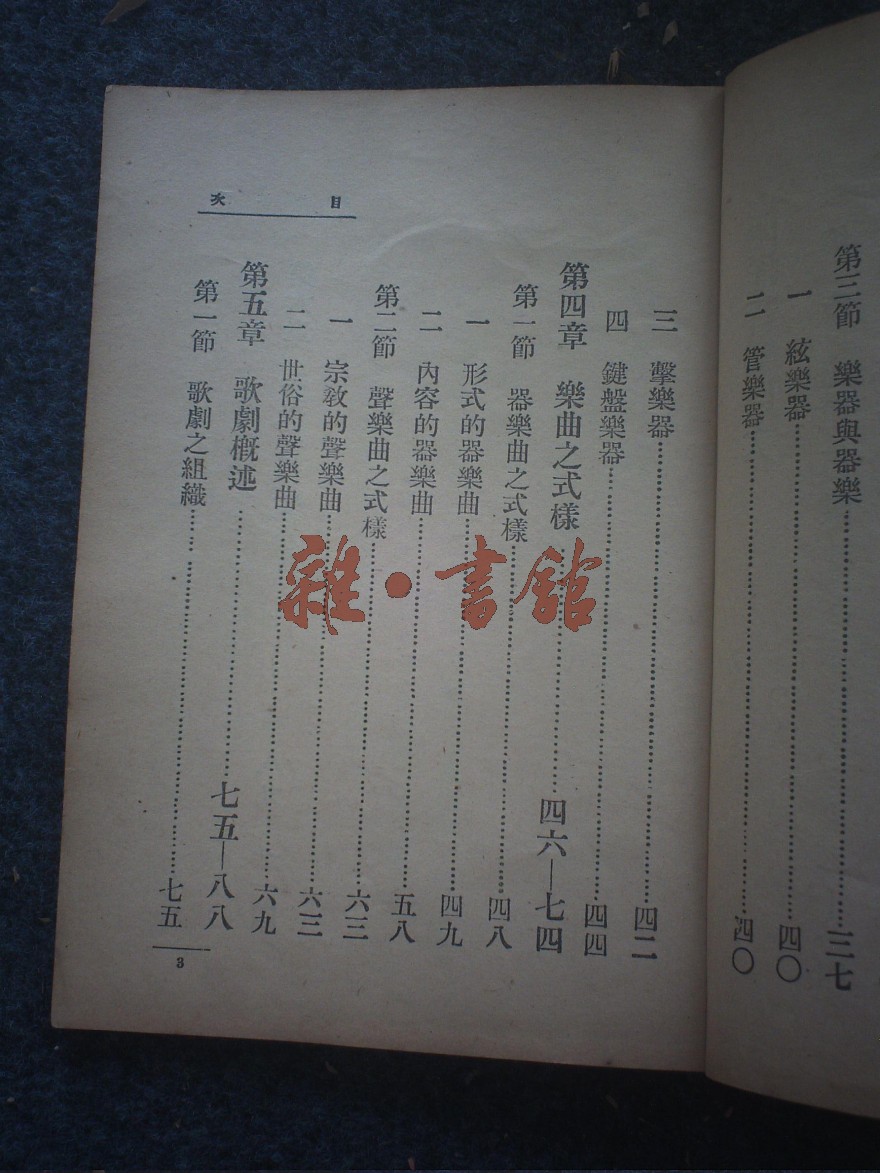 第三節 樂器與器樂……三七
一 絃樂器……四〇
二 管樂器……四〇
目次
三 擊樂器……四二
四 鍵盤樂器……四四
第四章 樂曲之式樣……四六—七四
第一節 器樂曲之式樣……四八
一 形式的器樂曲……四九
二 內容的器樂曲……五八
第二節 聲樂曲之式樣……六三
一 宗教的聲樂曲……六三
二 世俗的聲樂曲……六九
第五章 歌劇概述……七五—八八
第一節 歌劇之組織……七五
3
雜·書館